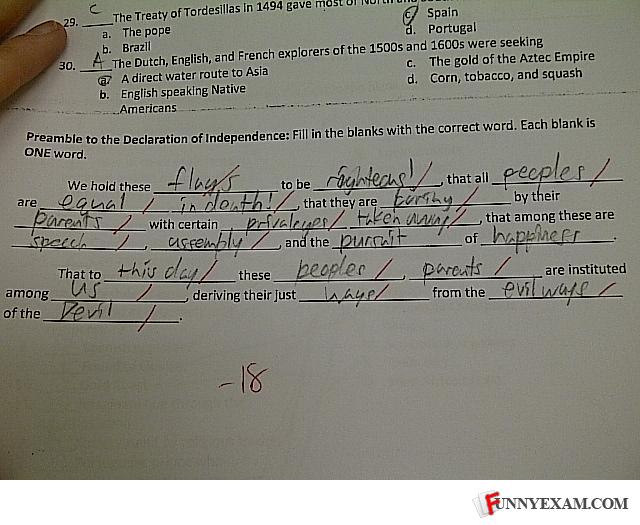 C
29. ____The Treaty of Tordesillas in 1494 gave most of North and South
a. The pope
c. Spain
b. Brazil
d. Portugal
30. A The Dutch, English, and French explorers of the 1500s and 1600s were seeking
a. A direct water route to Asia
c. The gold of the Aztec Empire
b. English speaking Native
d. Corn, tobacco, and squash
Americans
Preamble to the Declaration of Independence: Fill in the blanks with the correct word. Each blank is
ONE word.
We hold these flags to be righteous!, that all peoples
are equal in death!, that they are by their
parents with certain privaleges taken away, that among these are
speech, assembly, and the pursuit of happiness.
That to this day these peoples, parents are instituted
among us, deriving their just ways from the evil ways
of the Devil.
-18
FUNNYEXAM.COM